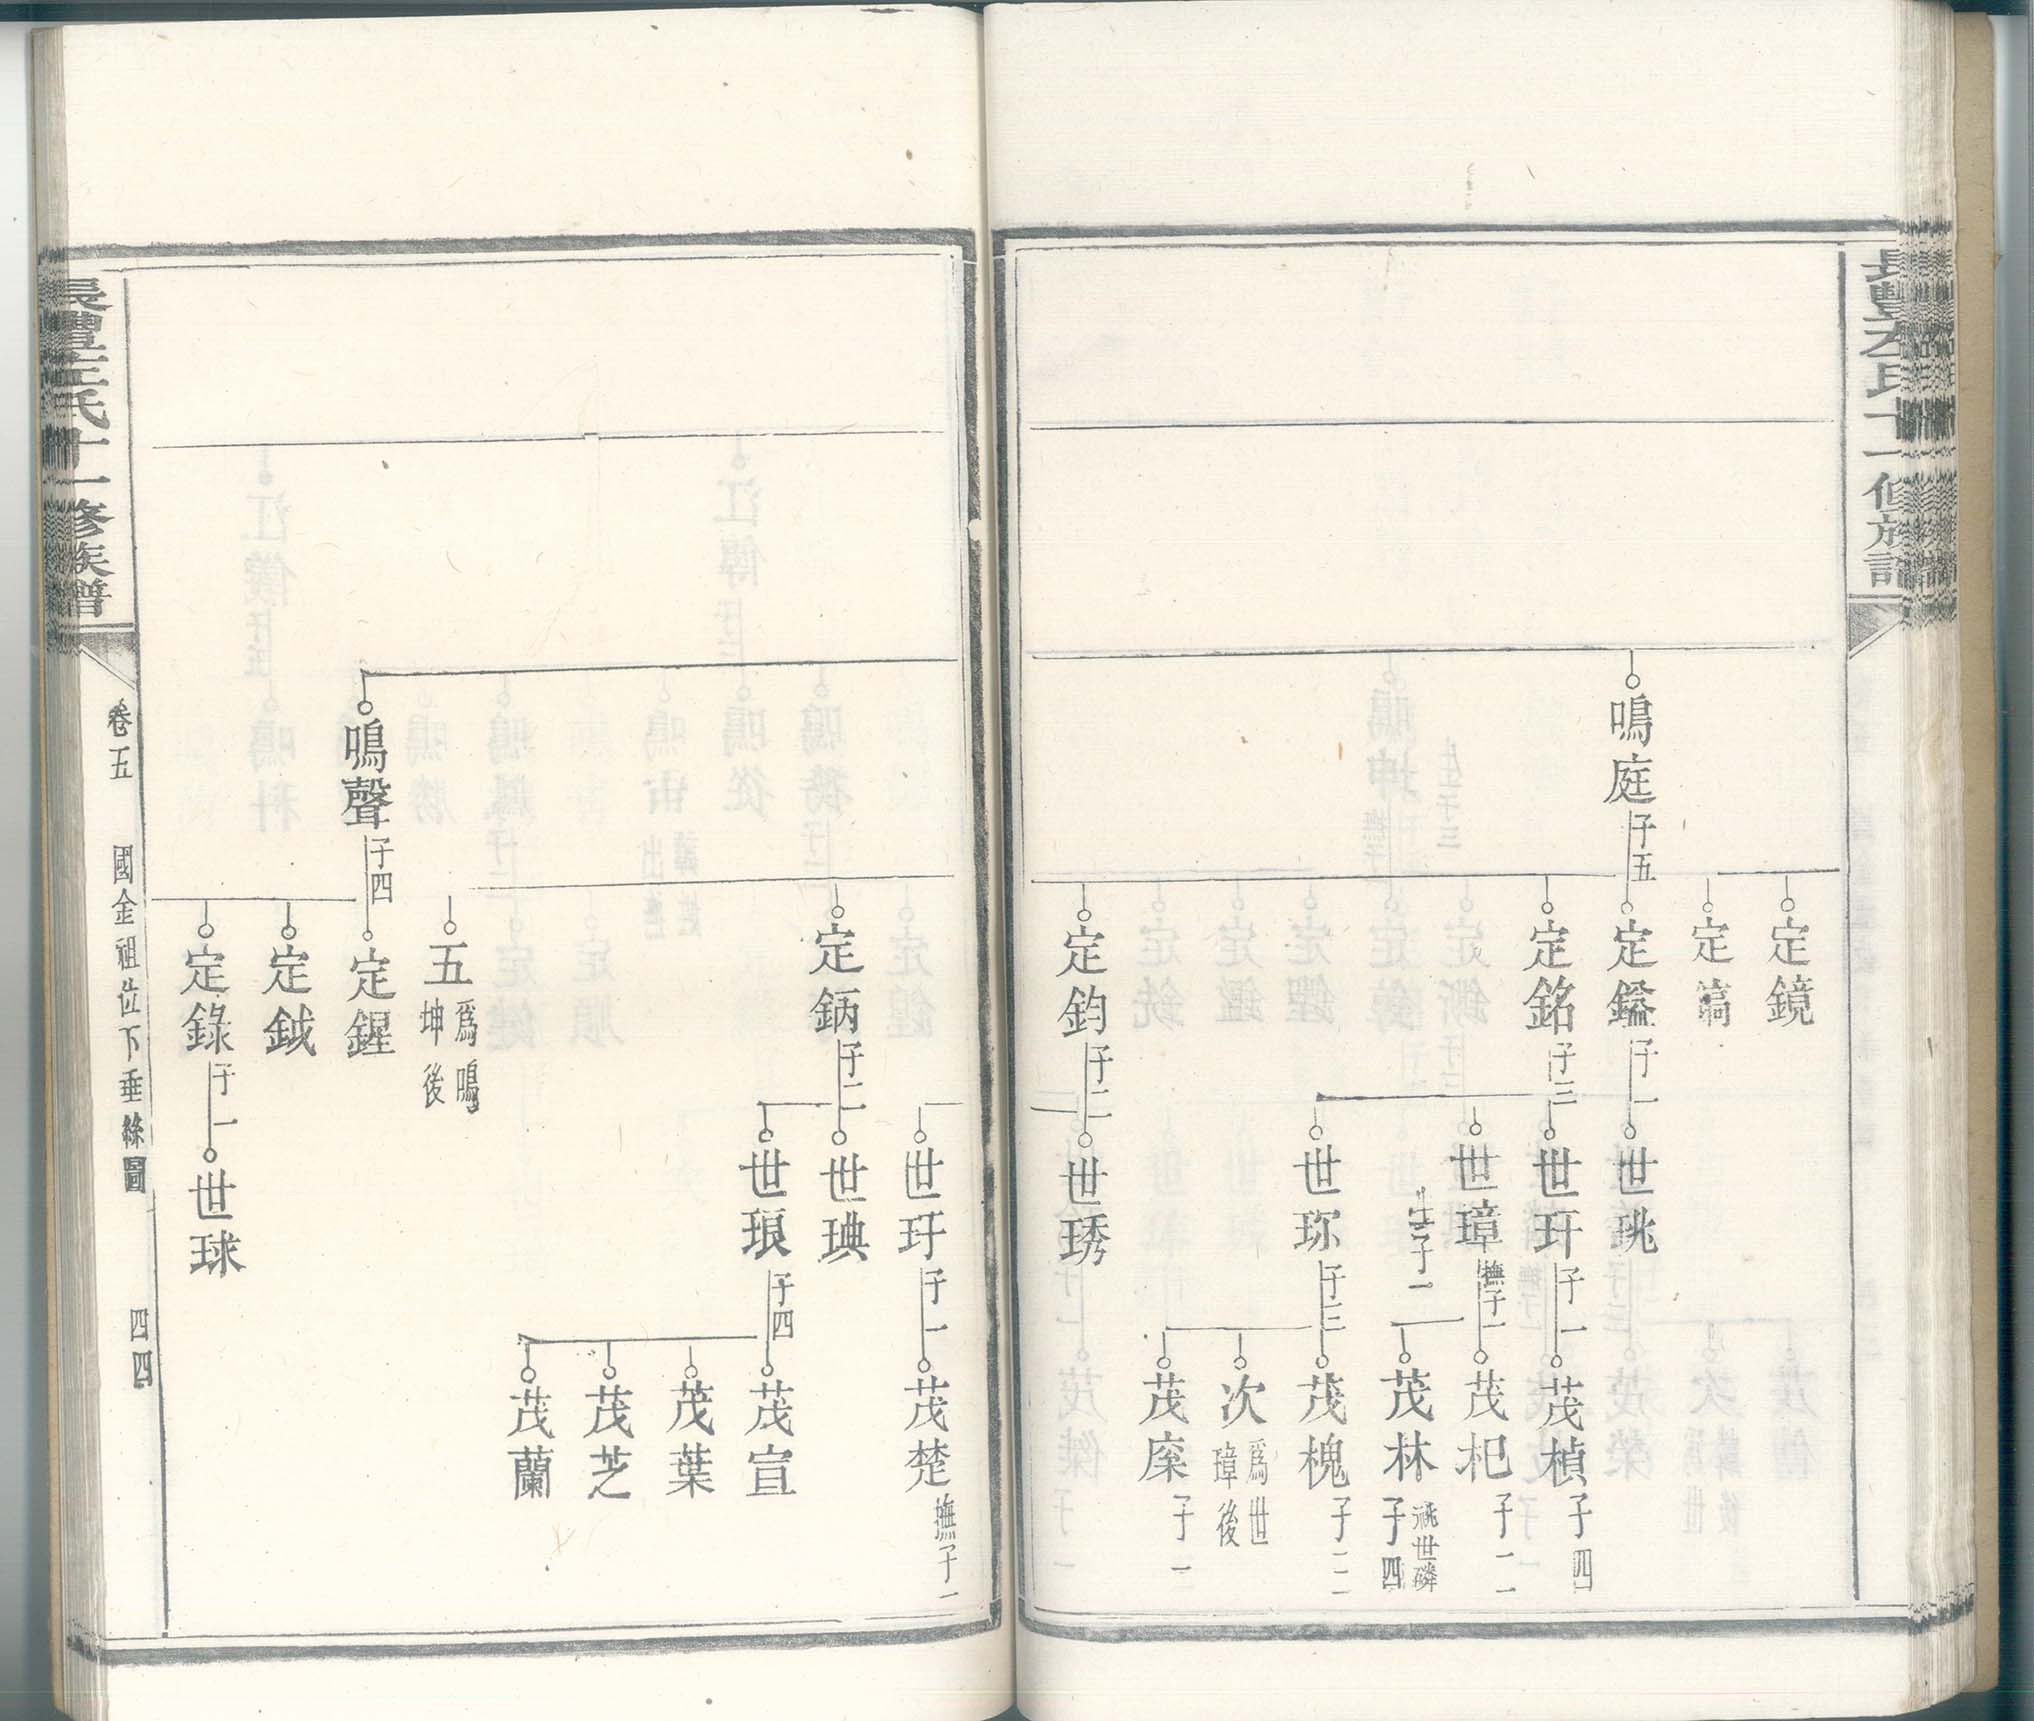 長豐左氏十一修族譜
鳴庭
子五
定鏡
定鎬
定鎰
子一
定銘
子三
定鈞
子二
世珧
世玕
子一
世璋
撫子一
生子一
世琮
子三
世琇
茂楨
子四
茂杞
子二
茂林
子四
祧世璘
茂槐
子二
次
爲世
璋後
茂
子一
鳴聲
子四
定鈵
子二
五
爲鳴
坤後
定鍟
定鉞
定錄
子一
世玗
子一
世琠
世琅
子四
世球
茂楚
撫子一
茂宣
茂葉
茂芝
茂蘭
長豐左氏十一修族譜
卷五
國金祖位下垂絲圖
四四